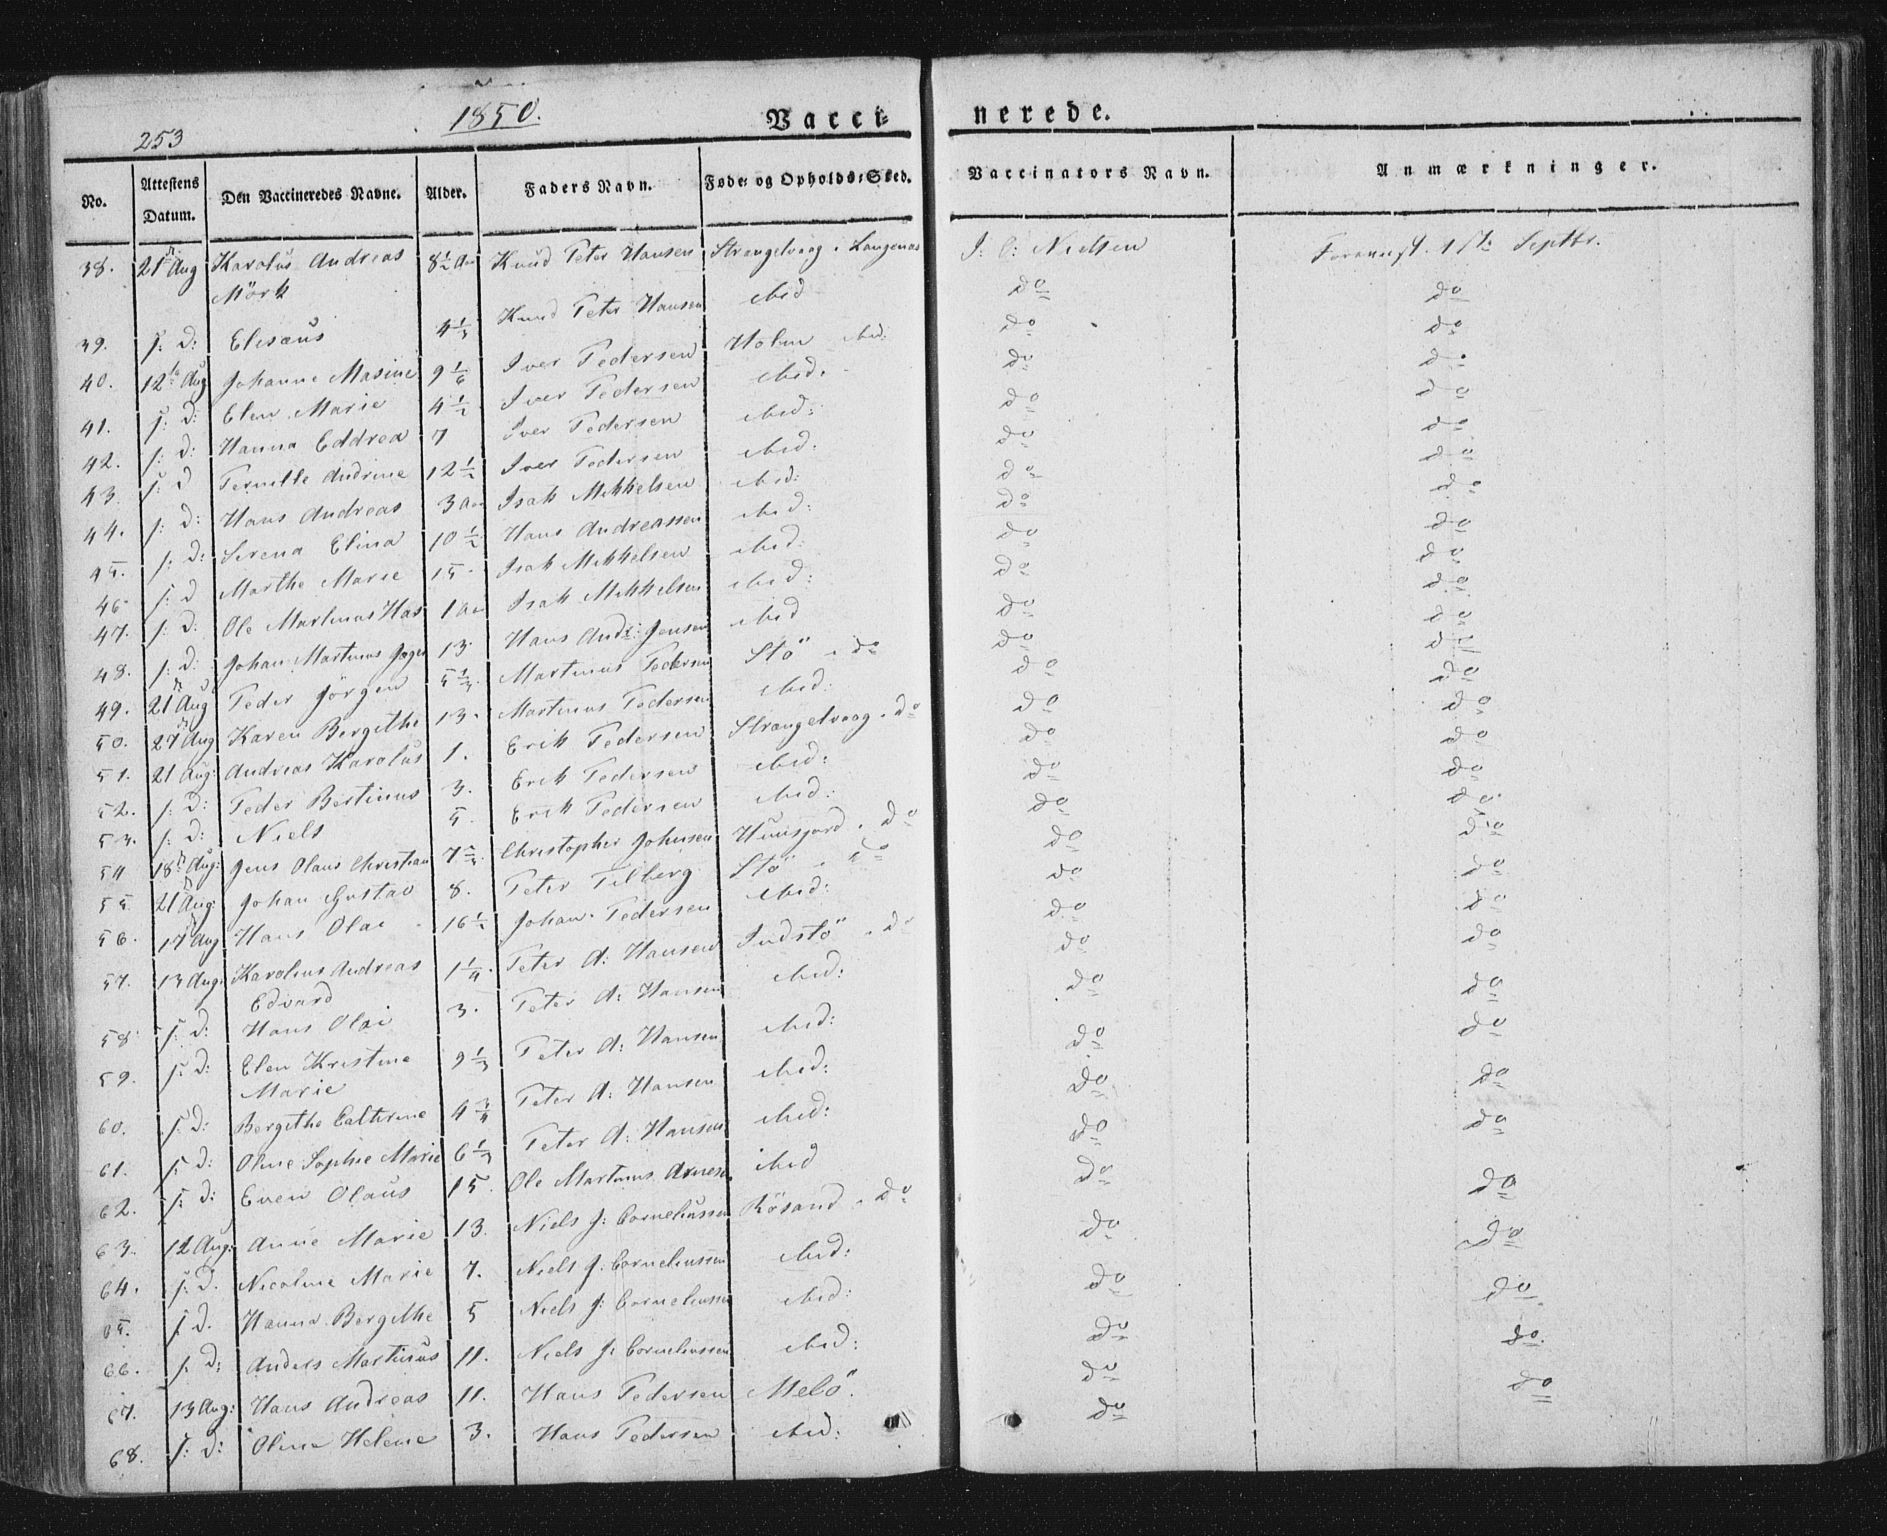 253
1850.
Vacci-nerede.
No. Attestens Datum. Den Vaccineredes Navne. Alder. Faders Navn. Føde- og Opholds-Sted. Vaccinators Navn. Anmærkninger.
38. 21 Aug Karolus Andreas Mörk 8½ Aar Knud Peter Hansen Strengelvaag i Langenæs J: C: Nielsen Forevist 1ste Septbr.
39. s: D: Elisæus 4⅓ Knud Peter Hansen ibid do do
40. 12te Aug Johanne Masine 9 1/6 Iver Pedersen Holm ibid: do do
41. s: D: Elen Marie 4½ Iver Pedersen ibid. do do
42. s: D: Hanna Eddrea 7 Iver Pedersen ibid: do do
43. s: D Pernille Andrine 12½ Iver Pedersen ibid: do do
44. s: D: Hans Andreas 3 Aar Isak Mikkelsen ibid: do do
45. s: D: Serena Elina 10½ Hans Andreassen ibid: do do
46. s: D Marthe Marie 15 Isak Mikkelsen ibid: do do
47. s: D: Ole Martinus Has 1 Aar Isak Mikkelsen ibid: do do
48. s: D: Johan Martinus Jæger 13. Hans Andr: Jensen ibid do do
49. 21 Aug Peder Jörgen 5⅓ Martinus Pedersen Stö i do do do
50. 27 Aug Karen Bergithe 13. Martinus Pedersen ibid: do do
51. 21 Aug: Andreas Karolus 1. Erik Pedersen Strengelvaag i do do do
52. s: D: Peder Bertinus 3. Erik Pedersen ibid: do do
53. s: D: Niels 5. Erik Pedersen ibid: do do
54 18 Aug: Jens Olaus Christian 7⅔ Christopher Johnsen Hunsjord i do do do
55 21 Aug: Johan Gustav 8. Peter Filberg Stö i do do do
56. 17 Aug Hans Olai 16½ Johan Pedersen ibid: do do
57. 13 Aug: Karolius Andreas Edvard 1¼ Peter A: Hansen Indstö i do do do
58 s: D: Hans Olai 3. Peter A: Hansen ibid: do do
59. s: D: Elen Kristine Marie 9⅓ Peter A: Hansen ibid: do do
60. s: D: Bergithe Cathrine 4¾ Peter A: Hansen ibid: do do
61. s D: Oline Sophie Marie 6⅓ Peter A: Hansen ibid: do do
62. s: D: Even Olaus 15. Ole Martinus Arnesen ibid do do
63. 12 Aug: Anne Marie 13. Niels J: Corneliussen Rösand i do do do
64. s: D. Nicoline Marie 7. Niels J: Corneliussen ibid: do do
65. s D. Hanna Bergithe 5 Niels J: Corneliussen ibid: do do
66. s: D: Anders Martinus 11. Niels J: Corneliussen ibid: do do
67. 13 Aug: Hans Andreas 11. Hans Pedersen Melö. do do
68. s: D: Oline Helene 3. Hans Pedersen ibid: do